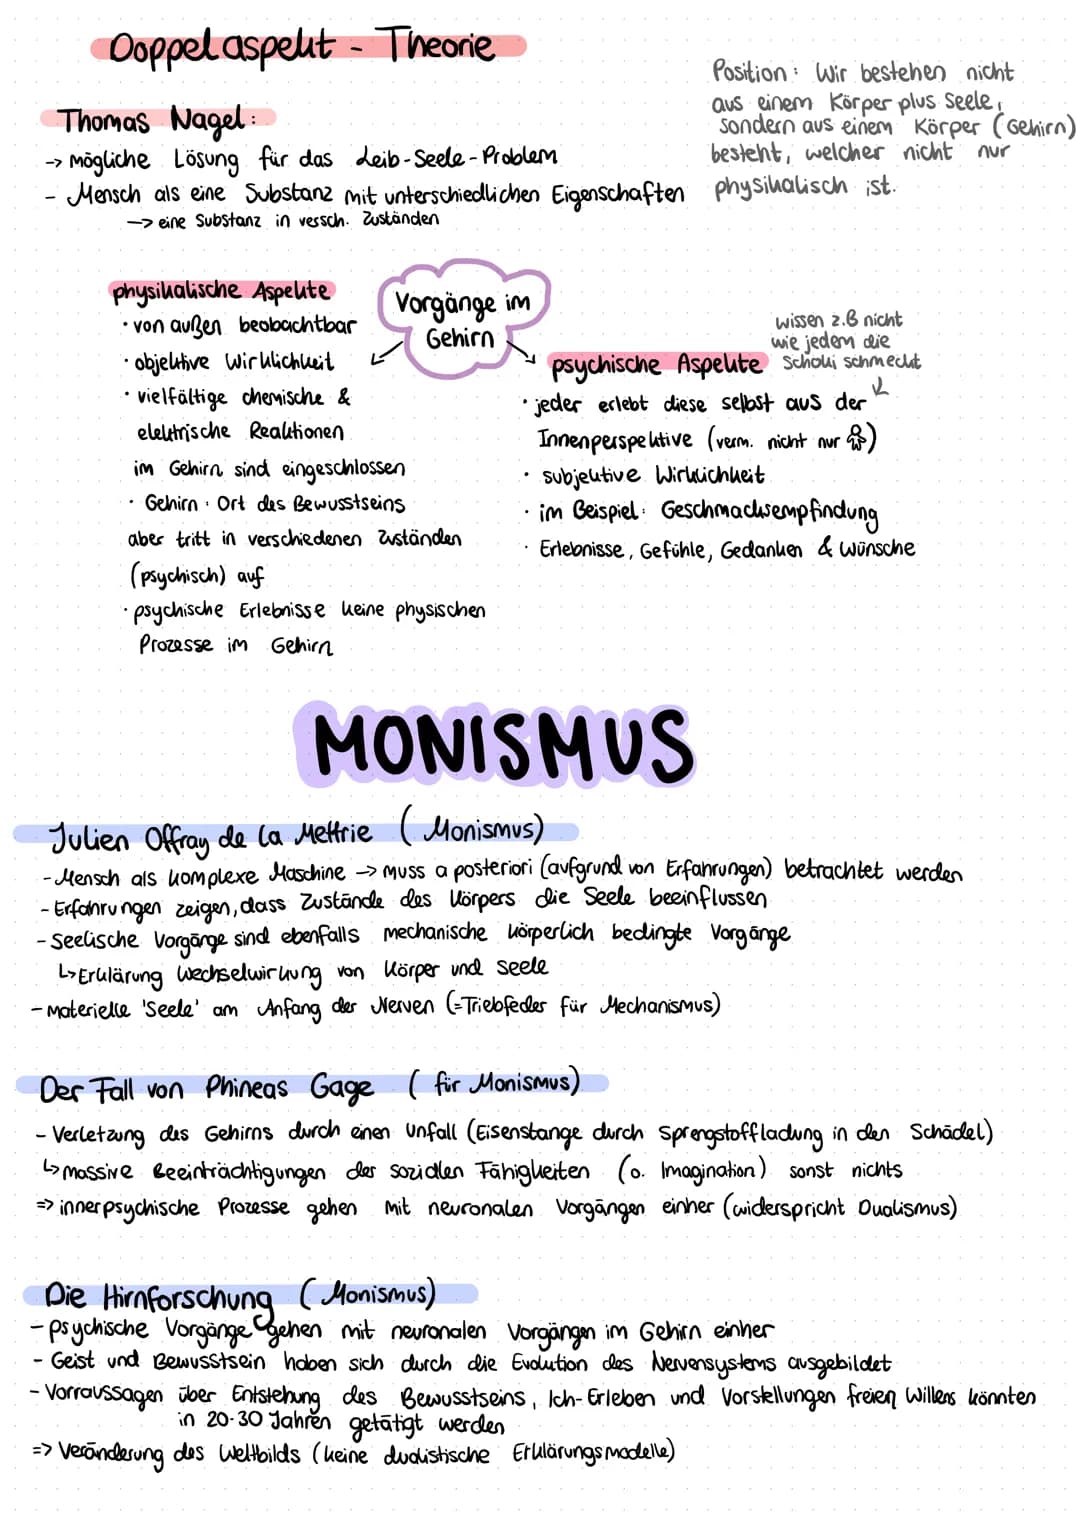 Doppelaspekt - Theorie
Position: Wir bestehen nicht
aus einem Körper plus Seele,
sondern aus einem Körper (Gehirn)
besteht, welcher nicht nur
physikalisch ist.
Thomas Nagel:
-> mögliche Lösung für das Leib-Seele-Problem
- Mensch als eine Substanz mit unterschiedlichen Eigenschaften
-> eine Substanz in versch. Zuständen
Vorgänge im
Gehirn
physikalische Aspekte
· von außen beobachtbar
· objektive Wirklichkeit
· vielfältige chemische &
elektrische Reaktionen
im Gehirn sind eingeschlossen
· Gehirn: Ort des Bewusstseins
aber tritt in verschiedenen Zuständen
(psychisch) auf
· psychische Erlebnisse keine physischen
Prozesse im Gehirn
wissen z.B nicht
wie jedem die
Schoki schmeckt
psychische Aspekte
· jeder erlebt diese selbst aus der
Innenperspektive (verm. nicht nur )
· subjektive Wirklichkeit
· im Beispiel: Geschmacksempfindung
· Erlebnisse, Gefühle, Gedanken & Wünsche
MONISMUS
Julien Offray de La Mettrie (Monismus)
- Mensch als komplexe Maschine -> muss a posteriori (aufgrund von Erfahrungen) betrachtet werden
- Erfahrungen zeigen, dass Zustände des Körpers die Seele beeinflussen
- Seelische Vorgänge sind ebenfalls mechanische körperlich bedingte Vorgänge
↳ Erklärung Wechselwirkung von Körper und Seele
- Materielle 'Seele' am Anfang der Nerven (=Triebfeder für Mechanismus)
Der Fall von Phineas Gage (für Monismus)
- Verletzung des Gehirns durch einen Unfall (Eisenstange durch Sprengstoffladung in den Schädel)
↳ massive Beeinträchtigungen der sozialen Fähigkeiten (o. Imagination) sonst nichts
=> innerpsychische Prozesse gehen mit neuronalen Vorgängen einher (widerspricht Dualismus)
Die Hirnforschung (Monismus)
- psychische Vorgänge gehen mit neuronalen Vorgängen im Gehirn einher
- Geist und Bewusstsein haben sich durch die Evolution des Nervensystems ausgebildet
- Vorraussagen über Entstehung des Bewusstseins, Ich-Erleben und Vorstellungen freien Willens könnten
in 20-30 Jahren getätigt werden
=> Veränderung des Weltbilds (keine dualistische Erklärungsmodelle)